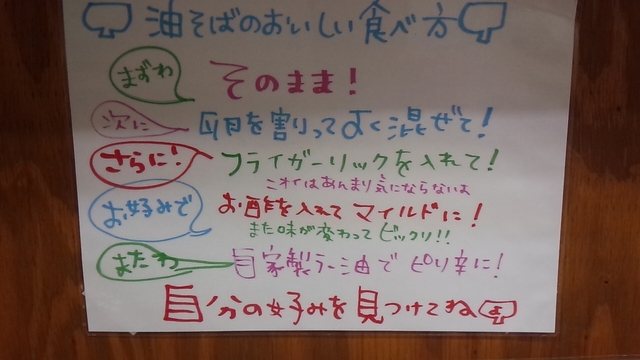 油そばのおいしい食べ方
まずわ そのまま!
次に 卵を割ってよく混ぜて!
さらに! フライガーリックを入れて!
ニオイはあんまり気にならないよ
お好みで お酢を入れてマイルドに!
また味が変わってビックリ!!
またわ 自家製ラー油でピリ辛に!
自分の好みを見つけてね